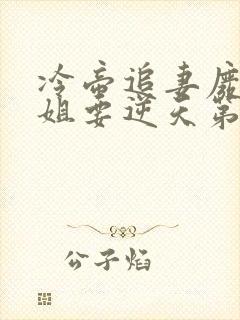 冷帝追妻
姐要逆天第
公子焰